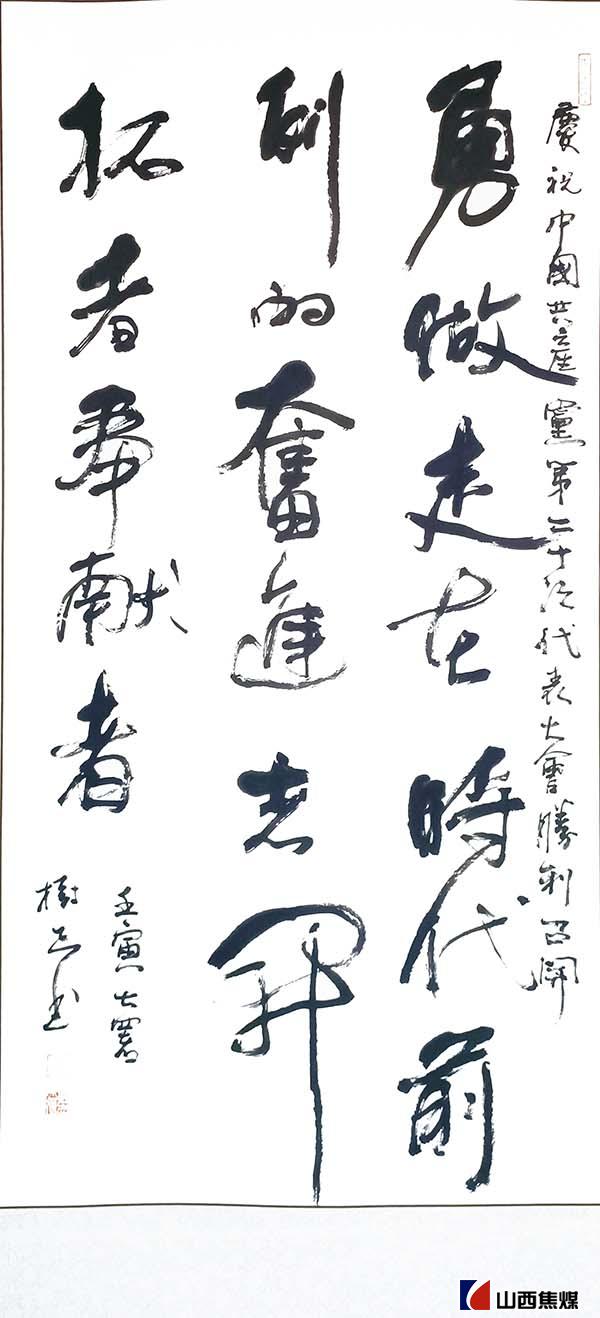 慶祝中國共產黨第二十次代表大會勝利召開
勇做走在時代前
列的奮進者開
拓者奉献者
壬寅大暑
樹 书
山西焦煤